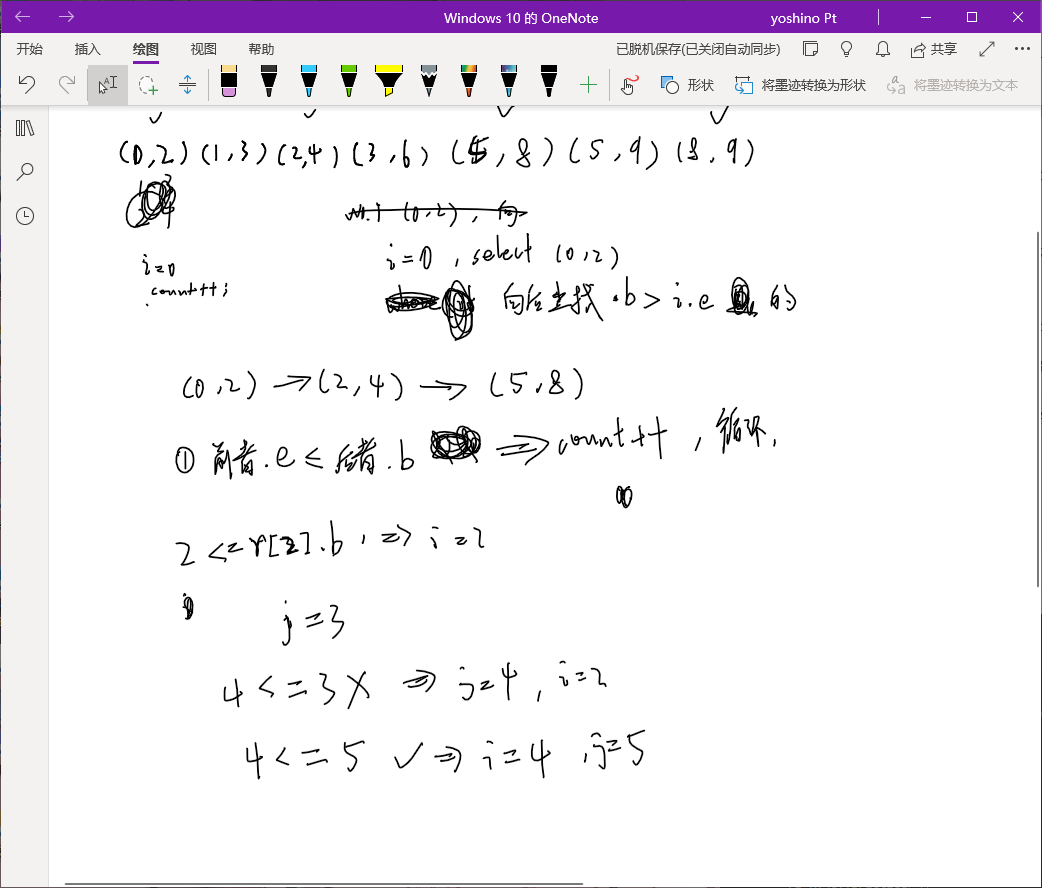 Windows 10 的 OneNote
yoshino Pt
开始 插入 绘图 视图 帮助
已脱机保存(已关闭自动同步) 共享
形状 将墨迹转换为形状 将墨迹转换为文本
(0,2) (1,3) (2,4) (3,6) (5,8) (5,9) (8,9)
i=0
count++;
i=0, select (0,2)
向后查找 .b > i.e 的
(0,2) → (2,4) → (5,8)
① 前者.e ≤ 后者.b ⇒ count++, 循环.
2 <= r[2].b, => i=2
j=3
4 <= 3 X ⇒ j=4, i=2
4 <= 5 ✓ ⇒ i=4, j=5